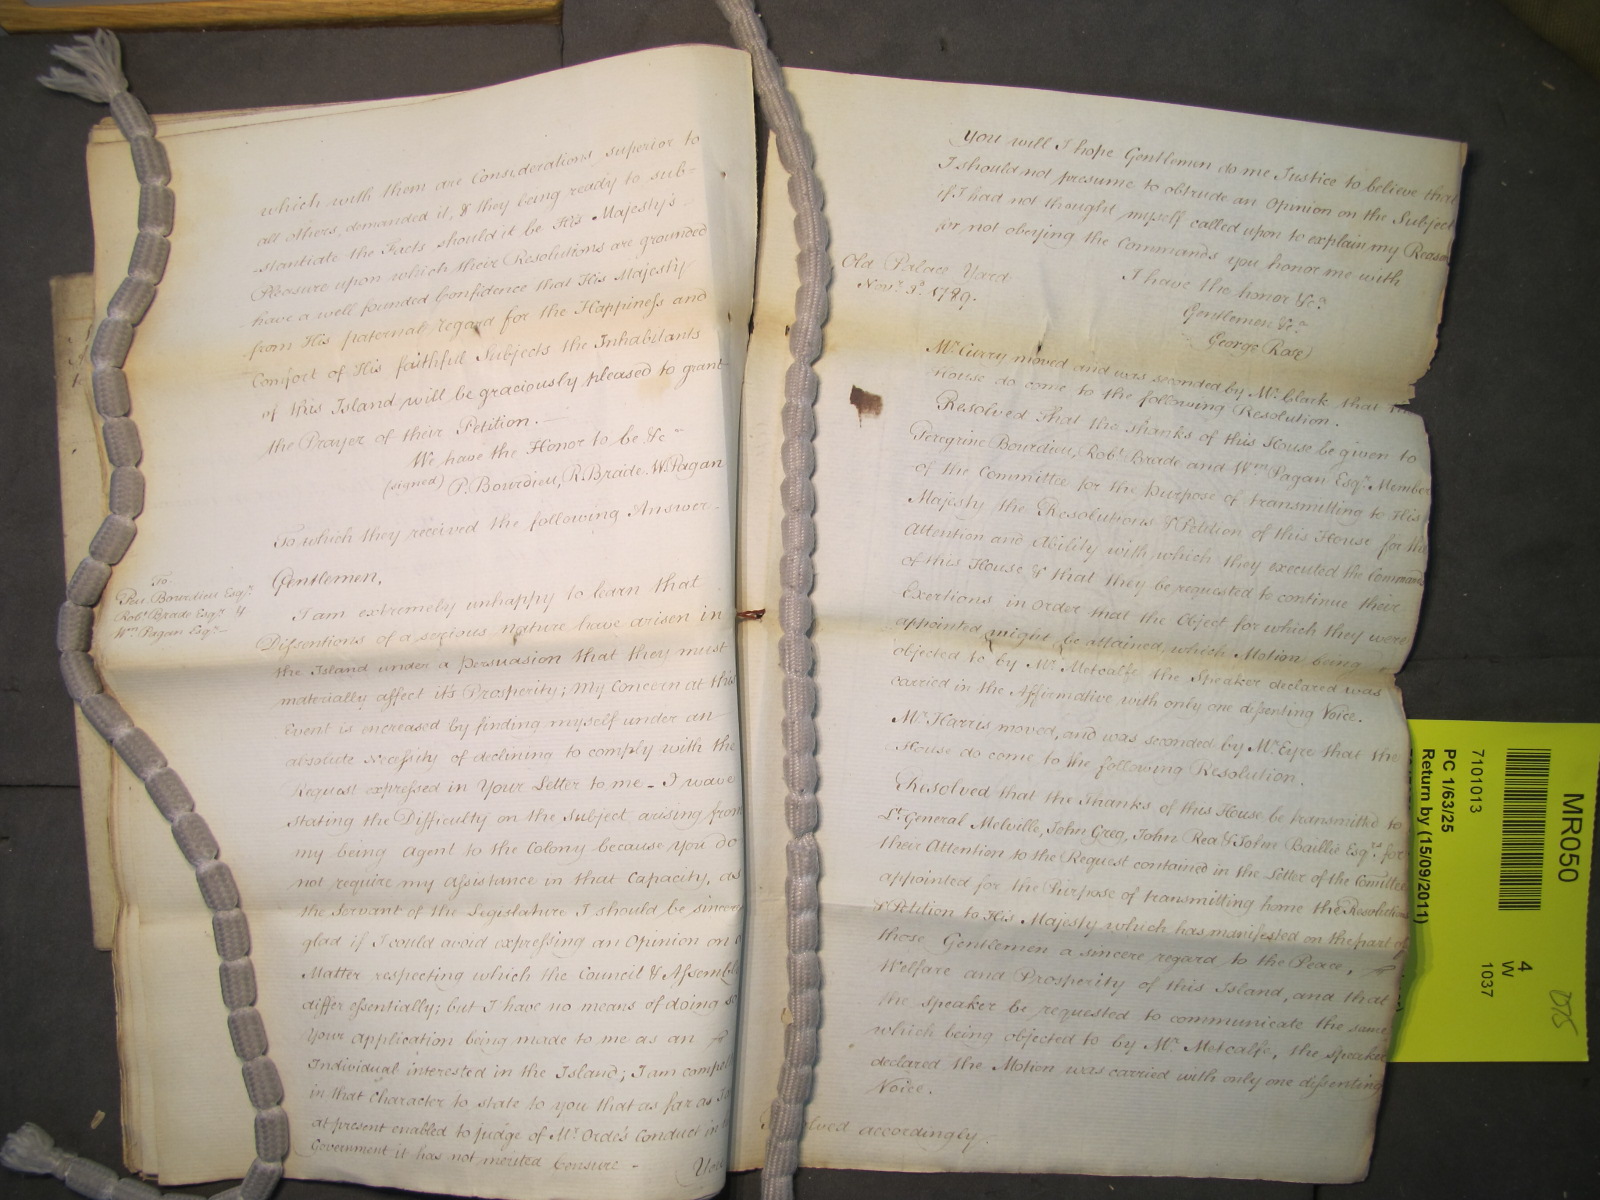 which with them are Considerations superior to
all others, demanded it, & they being ready to sub=
-stantiate the Facts should it be His Majesty's
Pleasure upon which their Resolutions are grounded
have a well founded Confidence that His Majesty
from His paternal regard for the Happiness and
Comfort of His faithful Subjects the Inhabitants
of this Island will be graciously pleased to grant
the Prayer of their Petition.—
We have the Honor to be &c
(signed) P. Bourdieu, R. Brade. W. Pagan
To which they received the following Answer.
To
Per. Bourdieu Esqr.
Robt. Brade Esqr. &
Wm. Pagan Esqr.
Gentlemen,
I am extremely unhappy to learn that
Dissentions of a serious nature have arisen in
the Island under a Persuasion that they must
materially affect it's Prosperity; My Concern at this
Event is encreased by finding myself under an
absolute Necessity of declining to comply with the
Request expressed in Your Letter to me – I wave
stating the Difficulty on the Subject arising from
my being Agent to the Colony because you do
not require my Assistance in that Capacity, as
the Servant of the Legislature I should be sincere
glad if I could avoid expressing an Opinion on
Matter respecting which the Council & Assembl
differ essentially; but I have no means of doing so
Your application being made to me as an
Individual interested in the Island; I am compell
in that Character to state to you that as far as I
at present enabled to judge of Mr. Orde's Conduct in
Government it has not merited Censure –
You
You will I hope Gentlemen do me Justice to believe that
I should not presume to obtrude an Opinion on the Subject
if I had not thought myself called upon to explain my Reason
for not obeying the Commands you honor me with
Old Palace Yard
Novr. 3d. 1789.
I have the honor &c.
Gentlemen &c.
George Rose)
Mr. Curry moved and was seconded by Mr. Clark that
House do come to the following Resolution.
Resolved That the Thanks of this House be given to
Peregrine Bourdieu, Robt. Brade and Wm. Pagan Esqrs. Member
of the Committee for the Purpose of transmitting to His
Majesty the Resolutions & Petition of this House for the
Attention and Ability with which they executed the Command
of this House & that they be requested to continue their
Exertions in Order that the Object for which they were
appointed might be attained, which Motion being
objected to by Mr. Metcalfe the Speaker declared was
carried in the Affirmative with only one dissenting Voice.
Mr. Harris moved, and was seconded by Mr. Eyre that the
House do come to the following Resolution.
Resolved that the Thanks of this House be transmitted to
Lt. General Melville, John Greg, John Rea & John Baillie Esqrs. for
their Attention to the Request contained in the Letter of the Comittee
appointed for the Purpose of transmitting home the Resolutions
& Petition to His Majesty which has manifested on the part of
those Gentlemen a sincere regard to the Peace,
Welfare and Prosperity of this Island, and that
the Speaker be requested to communicate the same
which being objected to by Mr. Metcalfe, the Speaker
declared the Motion was carried with only one dissenting
Voice.
accordingly.
MR050
7101013
PC 1/63/25
Return by (15/09/2011)
4
W
1037